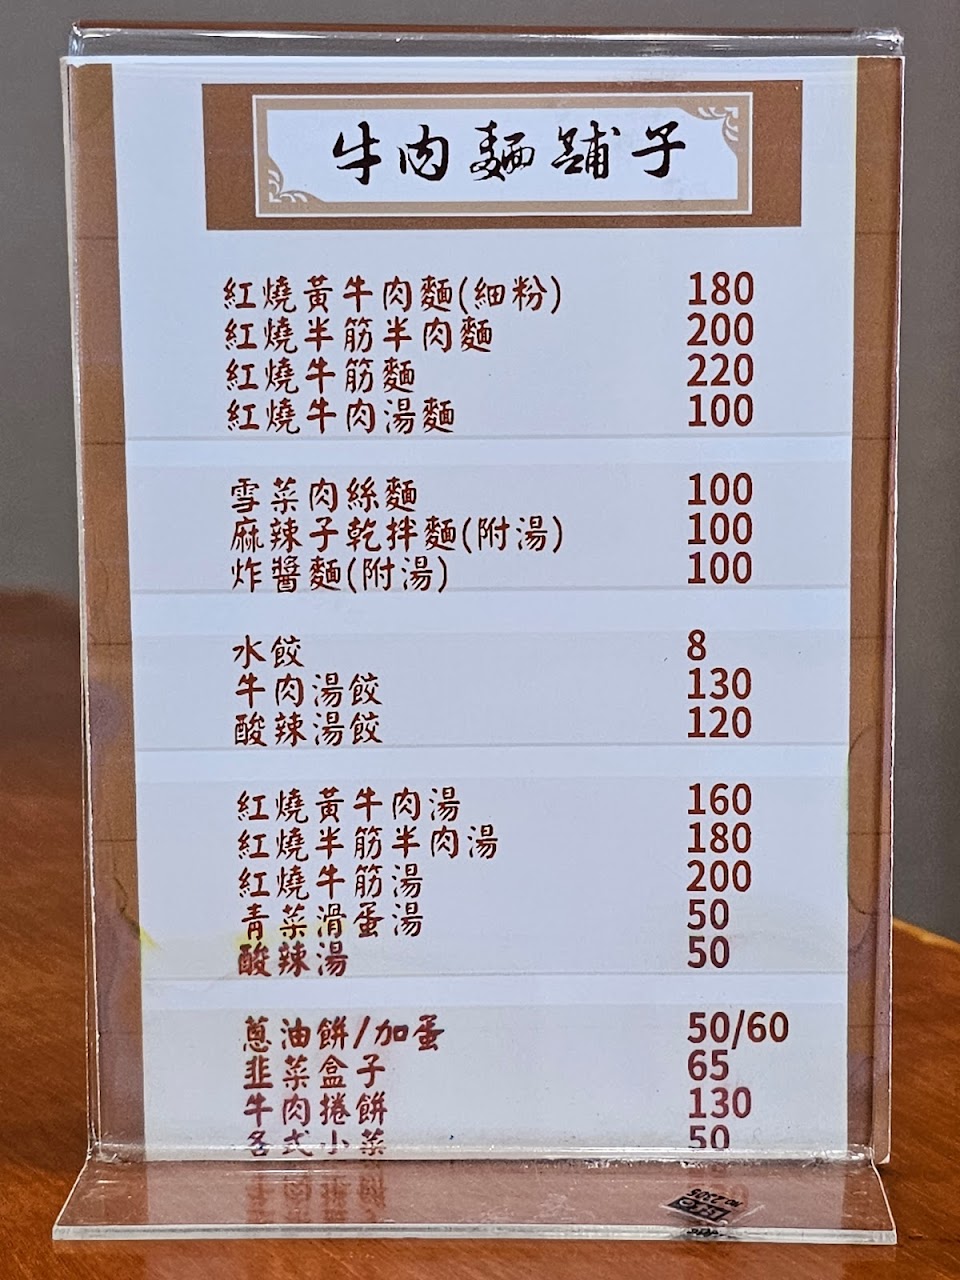 牛肉麵舖子
紅燒黃牛肉麵(細粉) 180
紅燒半筋半肉麵 200
紅燒牛筋麵 220
紅燒牛肉湯麵 100
雪菜肉絲麵 100
麻辣子乾拌麵(附湯) 100
炸醬麵(附湯) 100
水餃 8
牛肉湯餃 130
酸辣湯餃 120
紅燒黃牛肉湯 160
紅燒半筋半肉湯 180
紅燒牛筋湯 200
青菜滑蛋湯 50
酸辣湯 50
蔥油餅/加蛋 50/60
韭菜盒子 65
牛肉捲餅 130
各式小菜 50